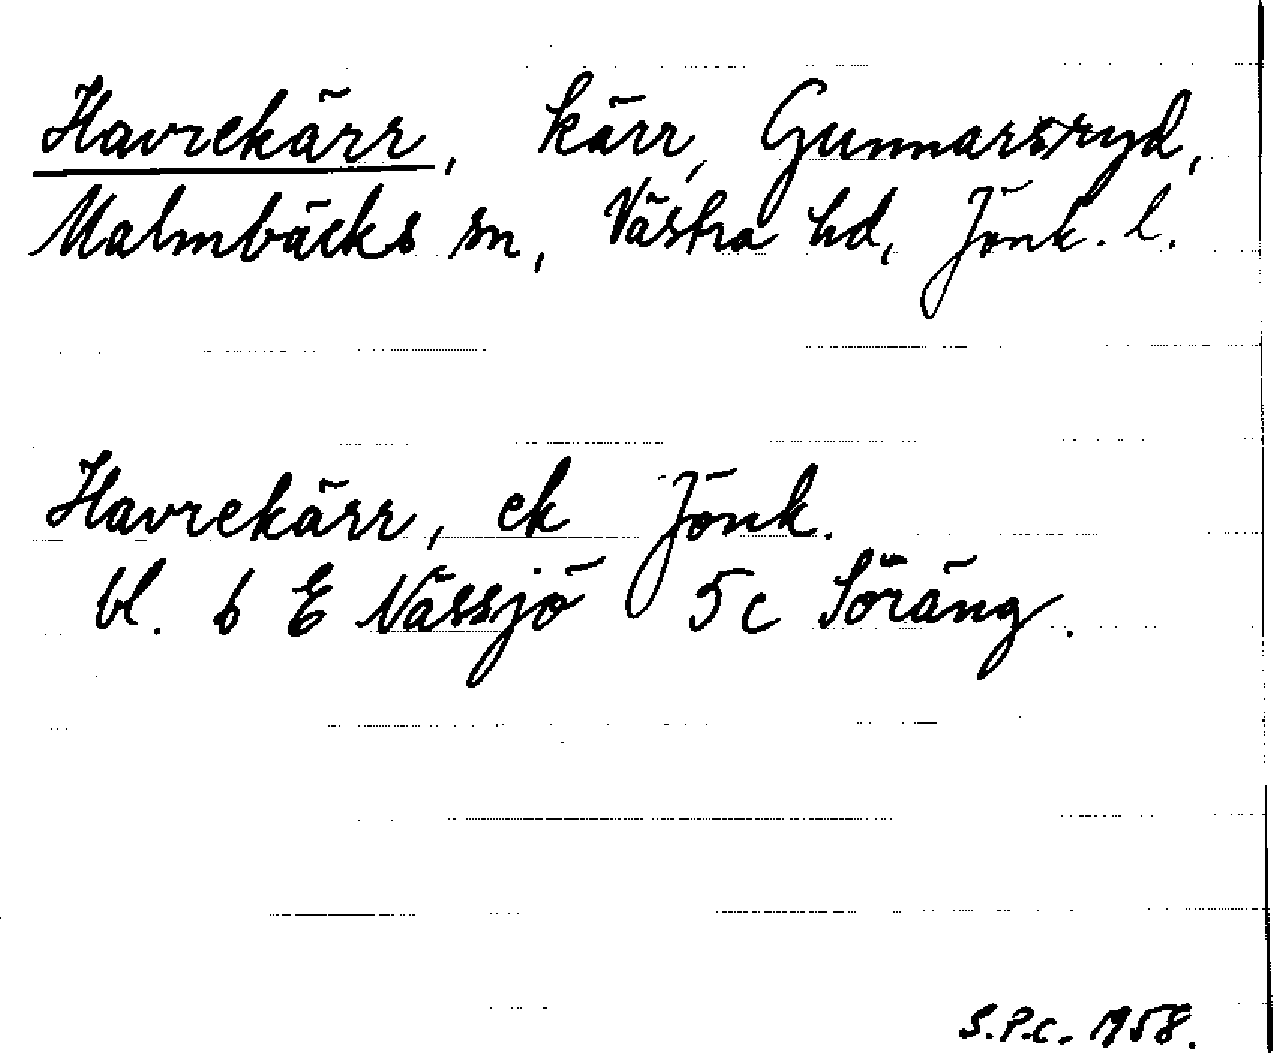 Havrekärr, kärr, Gunnarsryd,
Malmbäcks sn, Västra hd, Jönk. l.
Havrekärr, ek Jönk.
bl. 6 E Nässjö 5c Söräng.
S.P.C. 1958.